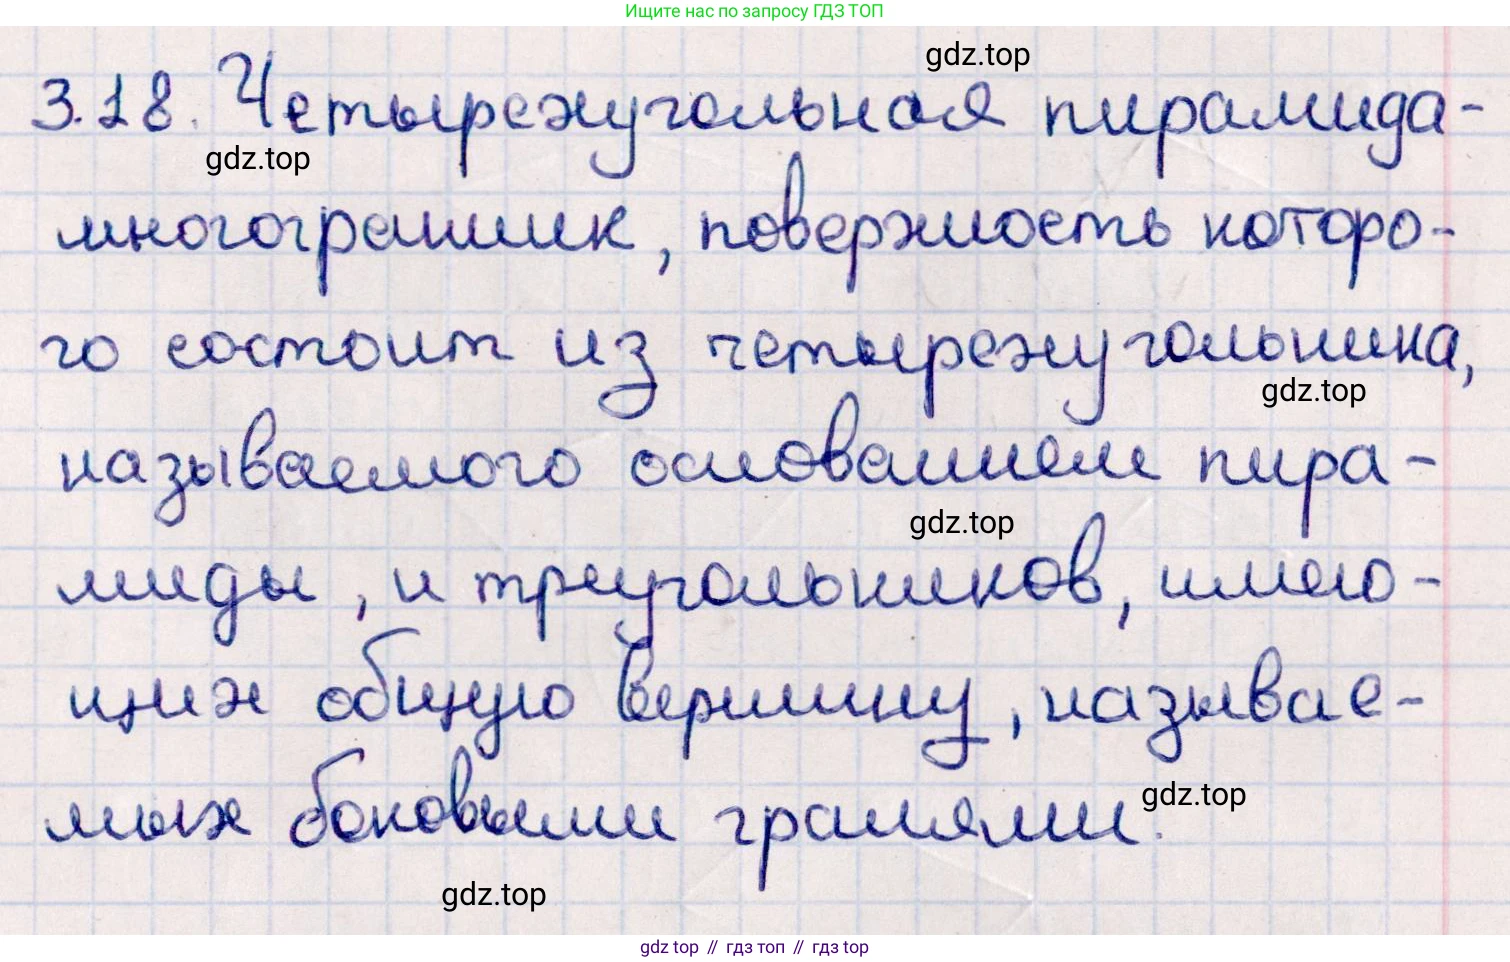 Ищите нас по запросу ГДЗ ТОП
gdz.top
3.18. Четырехугольная пирамида-
gdz.top
многогранник, поверхность которо-
го состоит из четырехугольника,
gdz.top
называемого основанием пира-
gdz.top
миды, и треугольников, имею-
щих общую вершину, называе-
мых боковыми гранями.
gdz.top
gdz.top
gdz top // гдз топ // гдз top